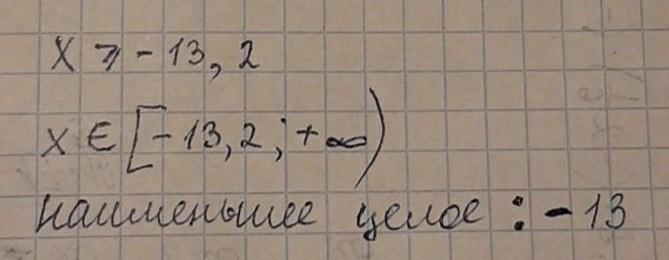 x ⩾ -13,2
x ∈ [-13,2; +∞)
наименьшее целое : -13